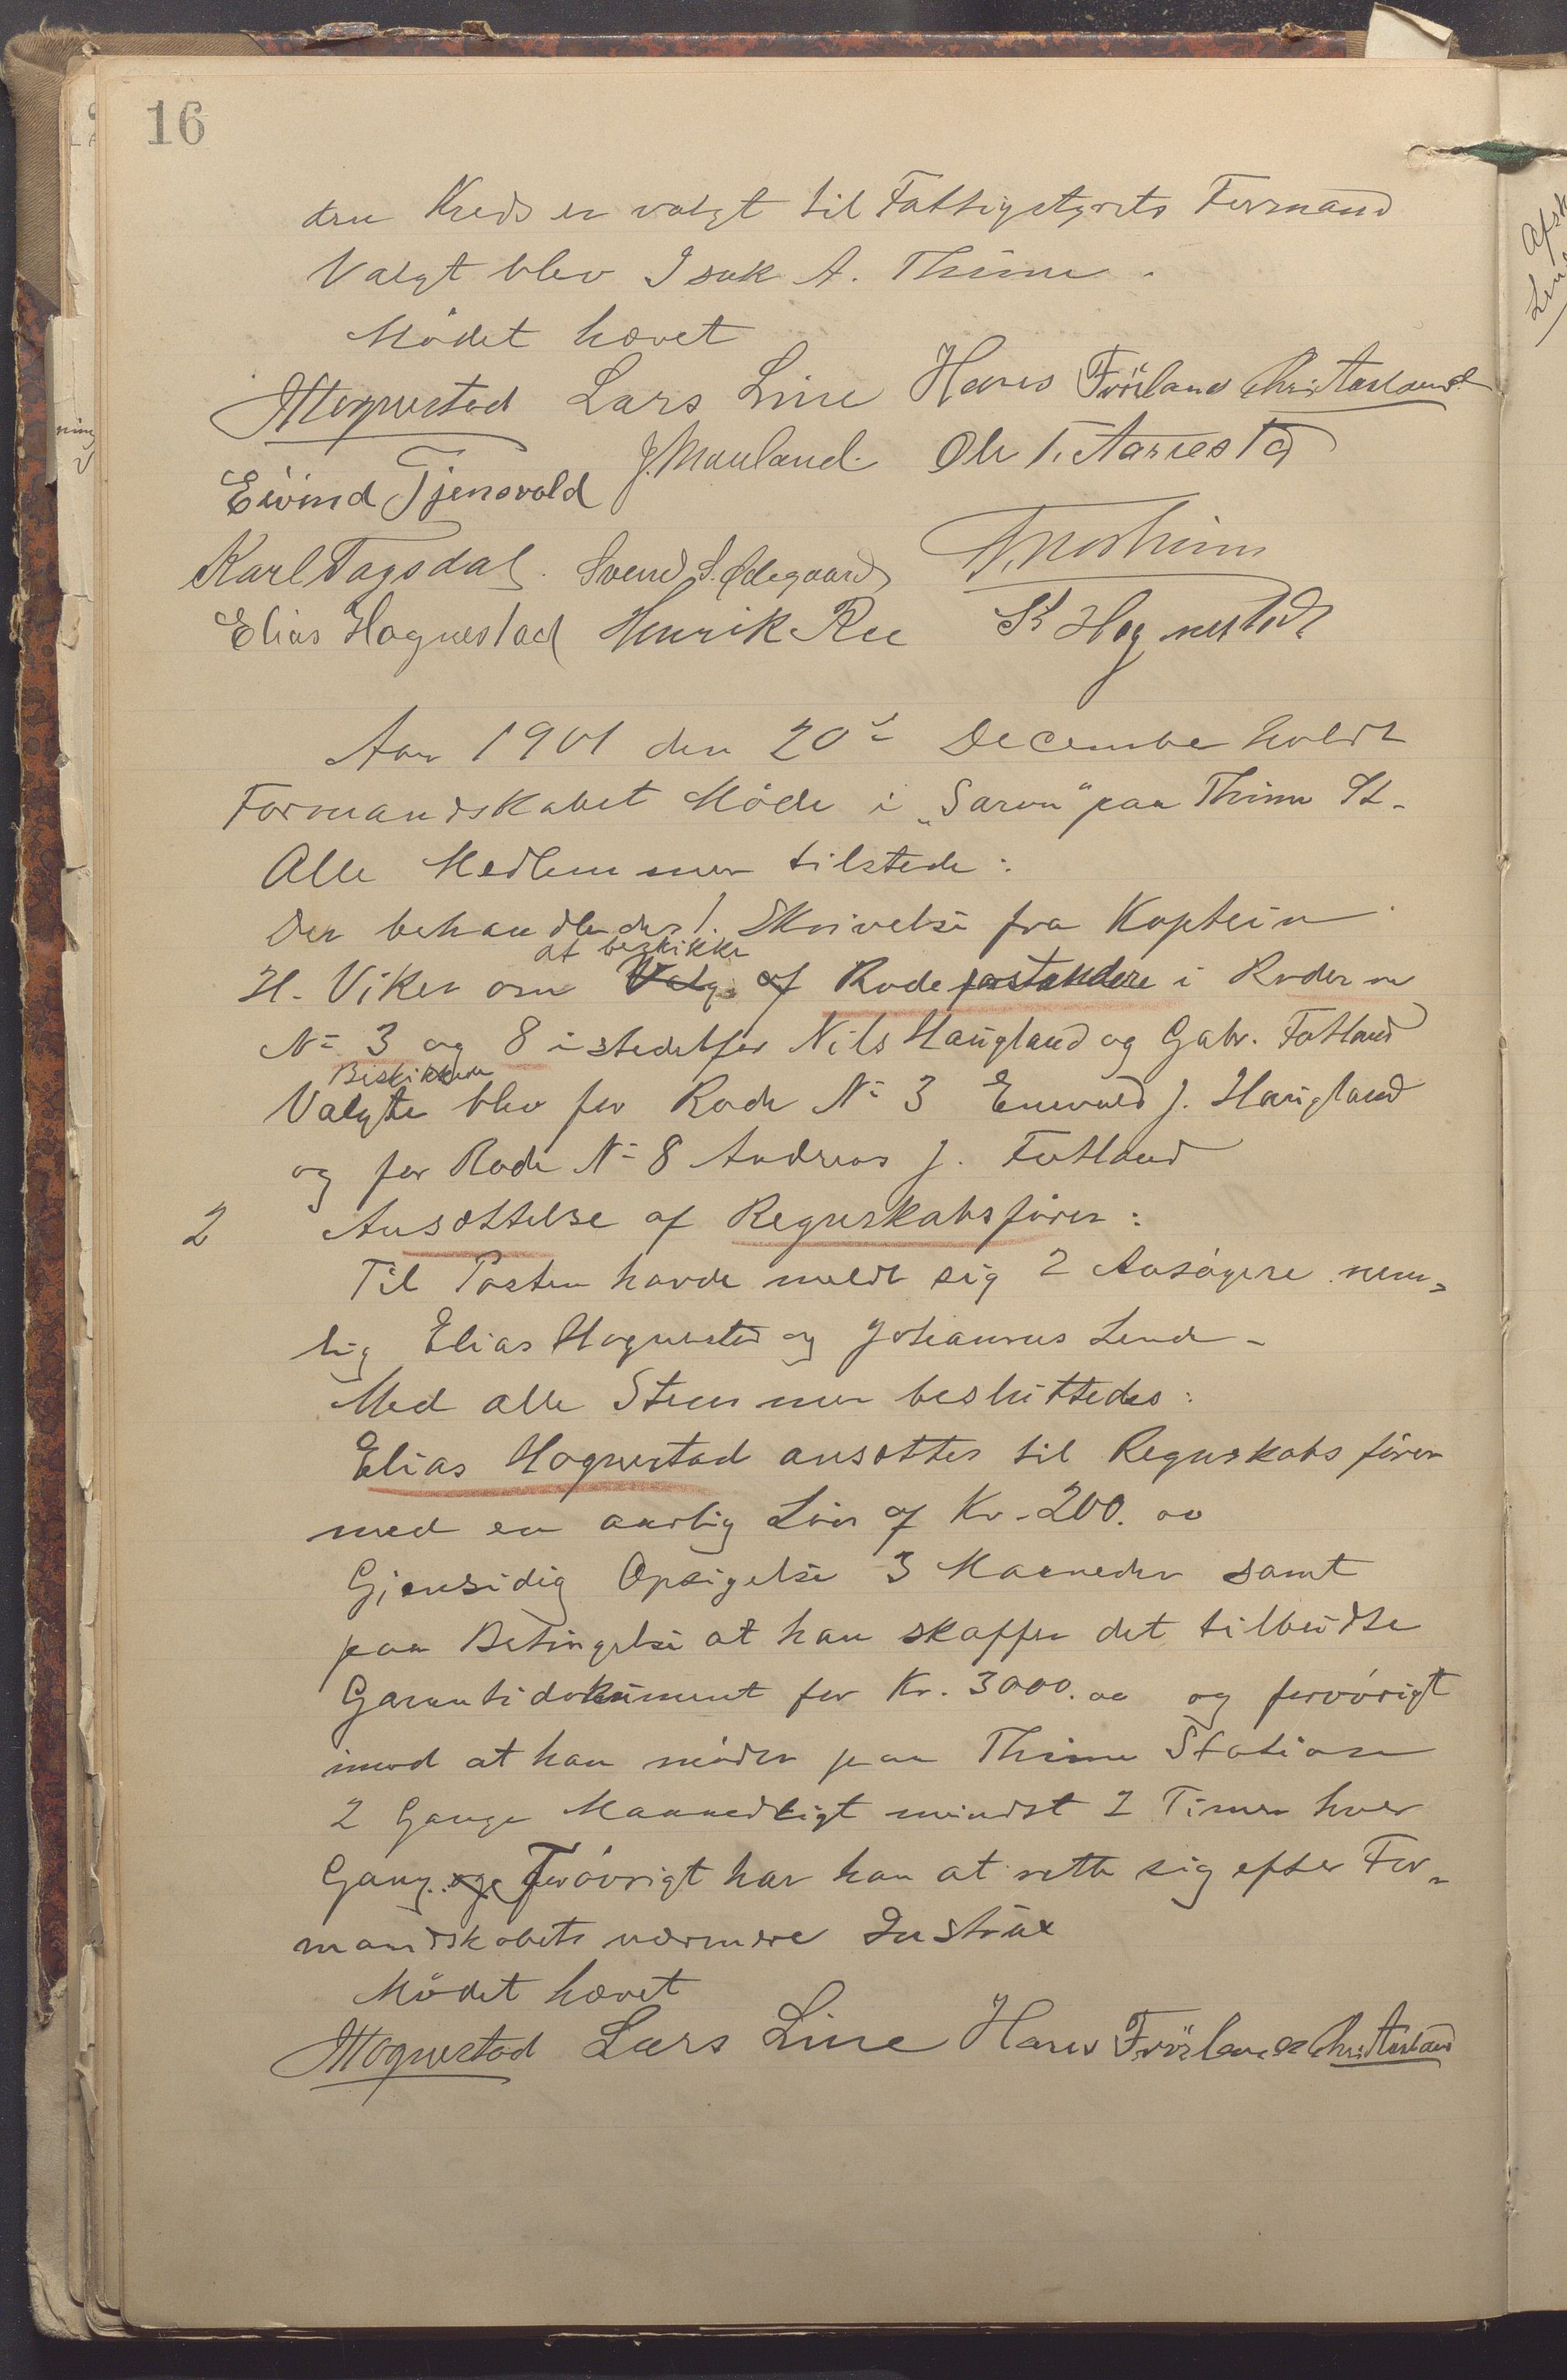 16
den Kreds er valgt til Fattigstyrets Formand
Valgt blev Isak A. Thime.
Mödet hævet
Hognestad Lars Line Hans Fröiland Chr. Aasland
Eivind Tjensvold J. Mauland. Ole T. Aarrestad
Karl Tagsdal. Svend S. Ødegaard
Elias Hognestad Henrik Ree Hognestad
Aar 1901 den 20de Decembe holdt
Formandskabet Möde i „Saron" paa Thime St.
Alle Medlemmer tilstede:
Der behandledes 1. Skrivelse fra Kaptein
at beskikke
H. Viker om Valg af Rodeforstandere i Roderne
No 3 og 8 istedetfor Nils Haugland og Gabr. Fotland
Beskikkede
Valgte blev for Rode No 3 Enevald J. Haugland
og for Rode No 8 Andreas J. Fotland
2 Ansættelse af Regnskabsförer:
Til Posten havde meldt sig 2 Ansögere nem-
lig Elias Hognestad og Johannes Lende
Med alle Stemmer besluttedes:
Elias Hognestad ansættes til Regnskabsförer
med en aarlig Lön af Kr. 200.00
Gjensidig Opsigelse 3 Maaneder samt
paa Betingelse at han skaffer det tilbudte
Garantidokument for Kr. 3000.00 og forövrigt
imod at han möder paa Thime Station
2 Gange Maanedligt mindst 2 Timer hver
Gang. og Forövrigt har han at rette sig efter For-
mandskabets nærmere Instrux
Mödet hævet
Hognestad Lars Line Hans Fröiland Chr. Aasland